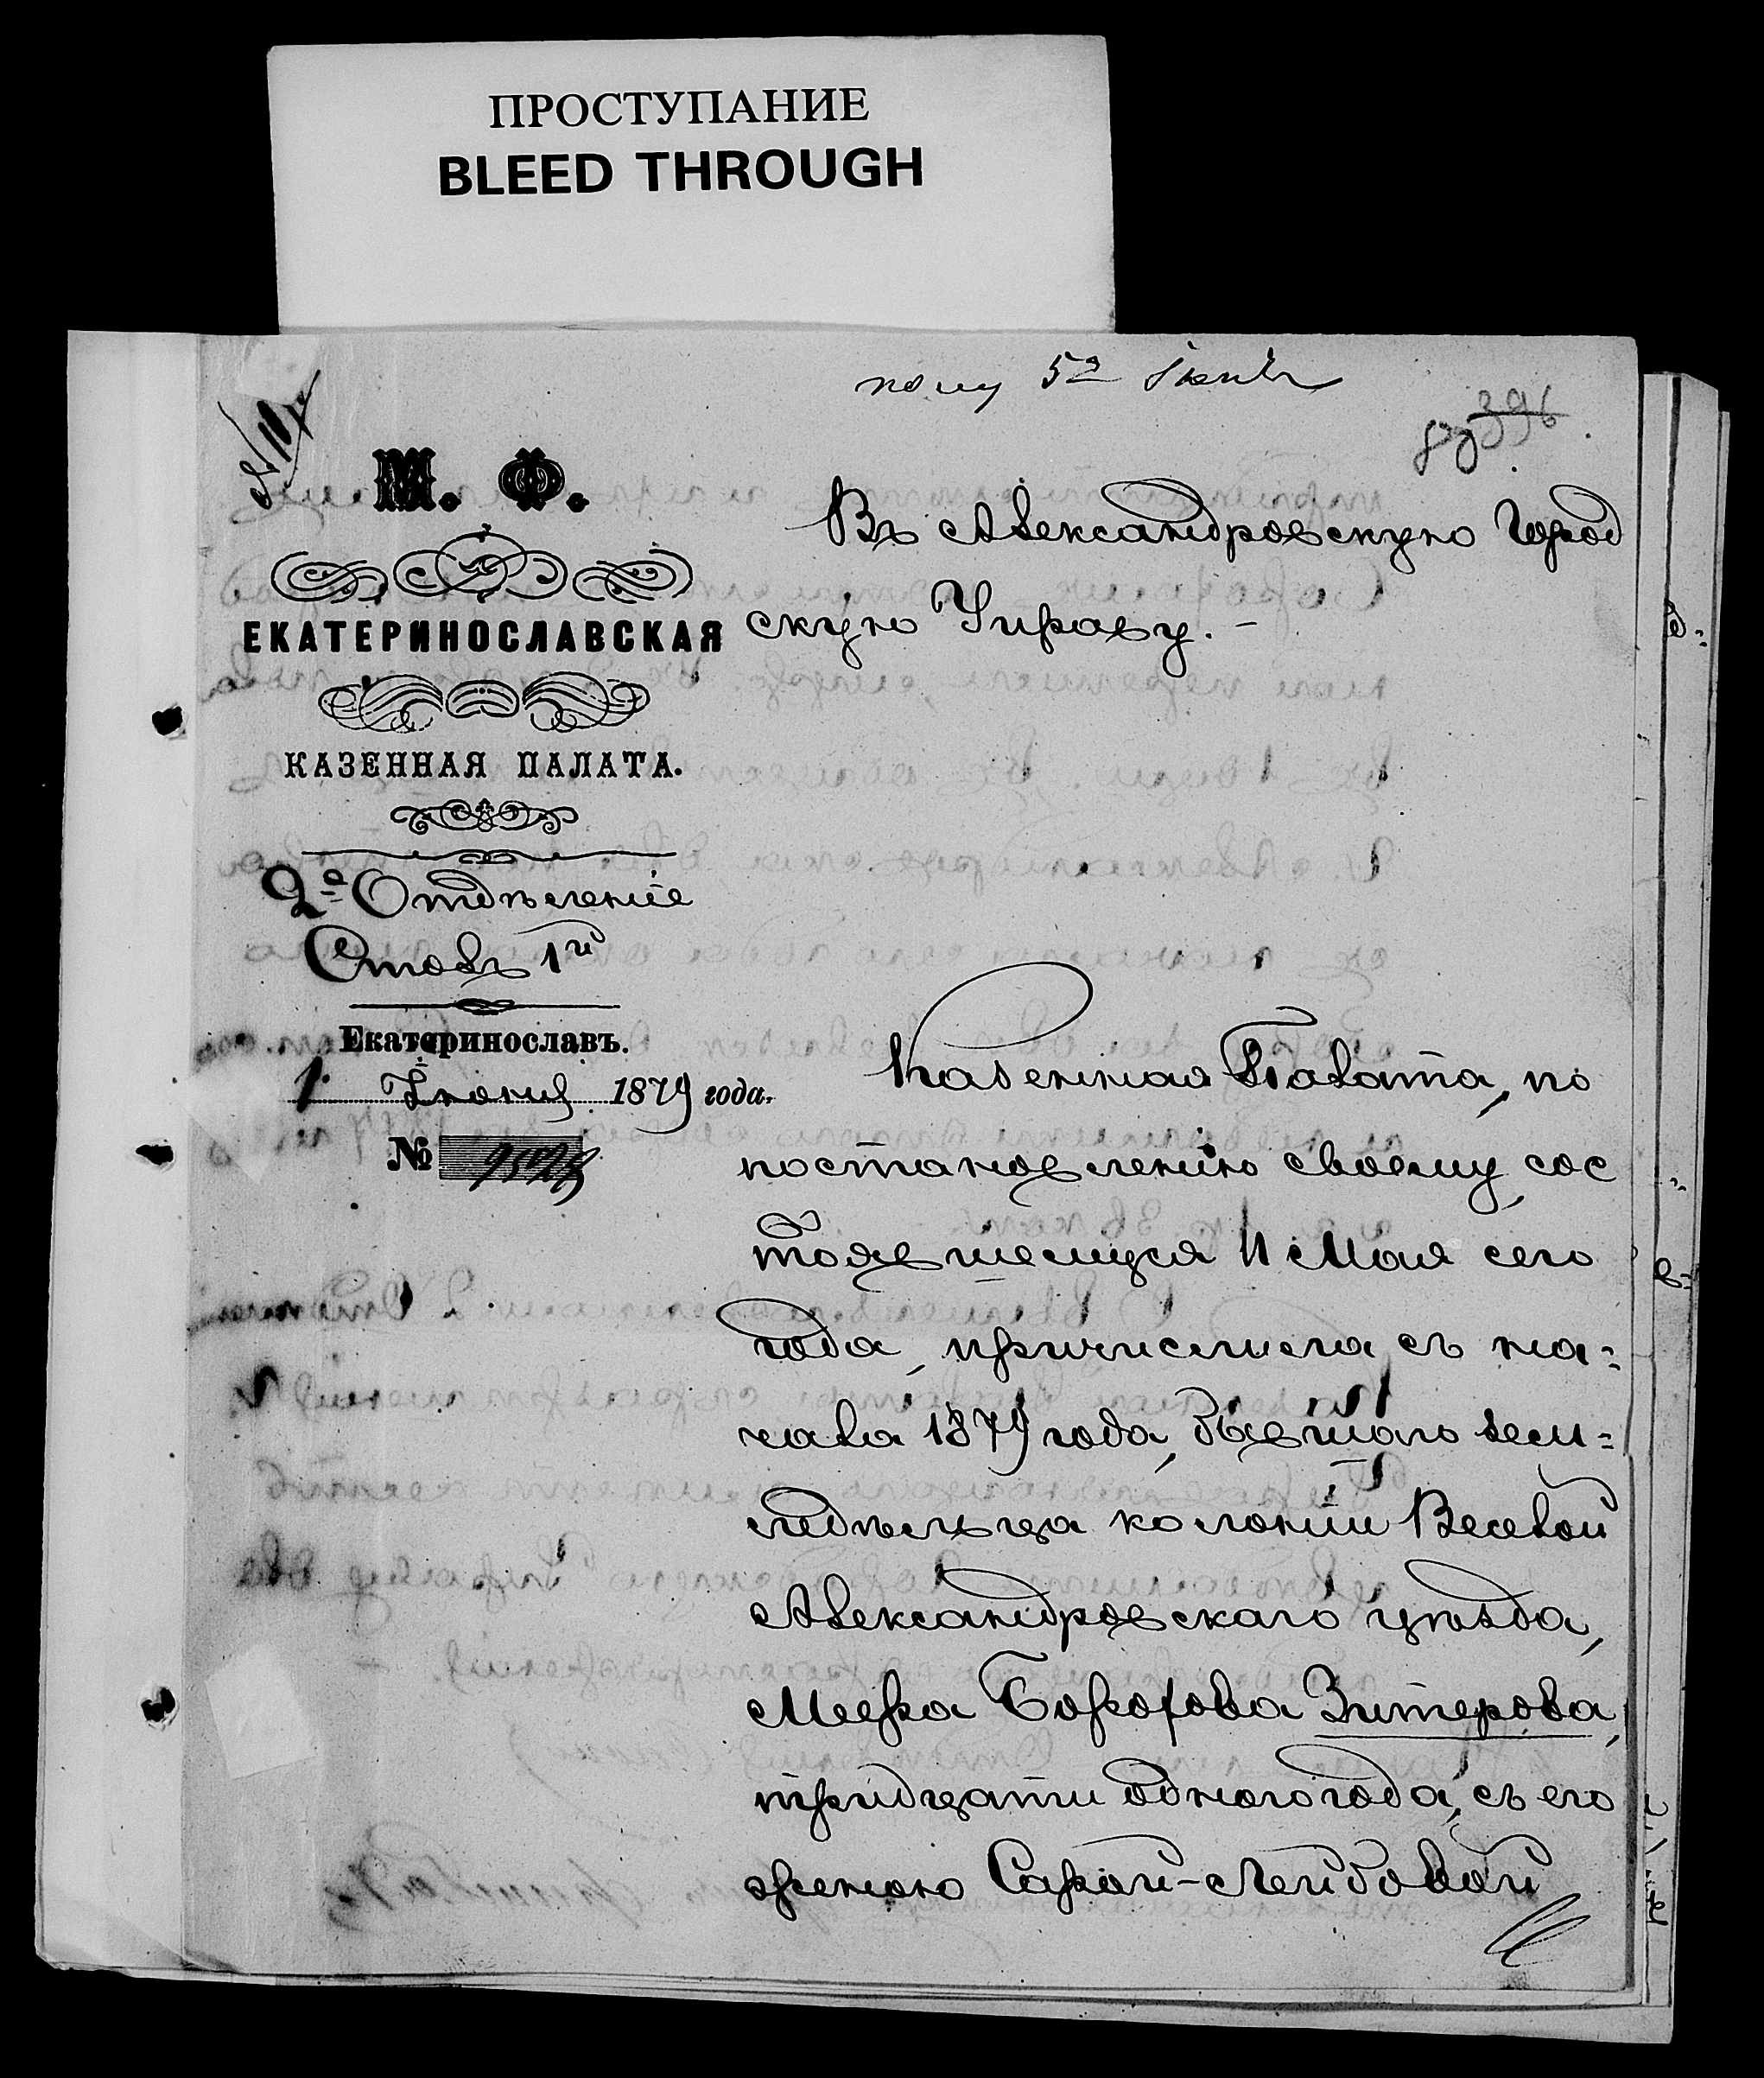 ПРОСТУПАНИЕ
BLEED THROUGH
М. Ф.
ЕКАТЕРИНОСЛАВСКАЯ
КАЗЕННАЯ ПАЛАТА.
2е Отдѣленіе
Столъ 1й
Екатеринославъ.
1 Іюня 1879 года.
№
396
Въ Александровскую Город
скую Управу. –
Казенная Палата, по
постановленію своему, сос
тоявшемуся 11 Мая сего
года, причислила съ на=
чала 1879 года, бывшаго зем=
ледѣльца колоніи Веселой
Александровскаго уѣзда,
Меера Борохова Зитерова,
тридцати одного года, съ его
женою Сарой-Лейбовой